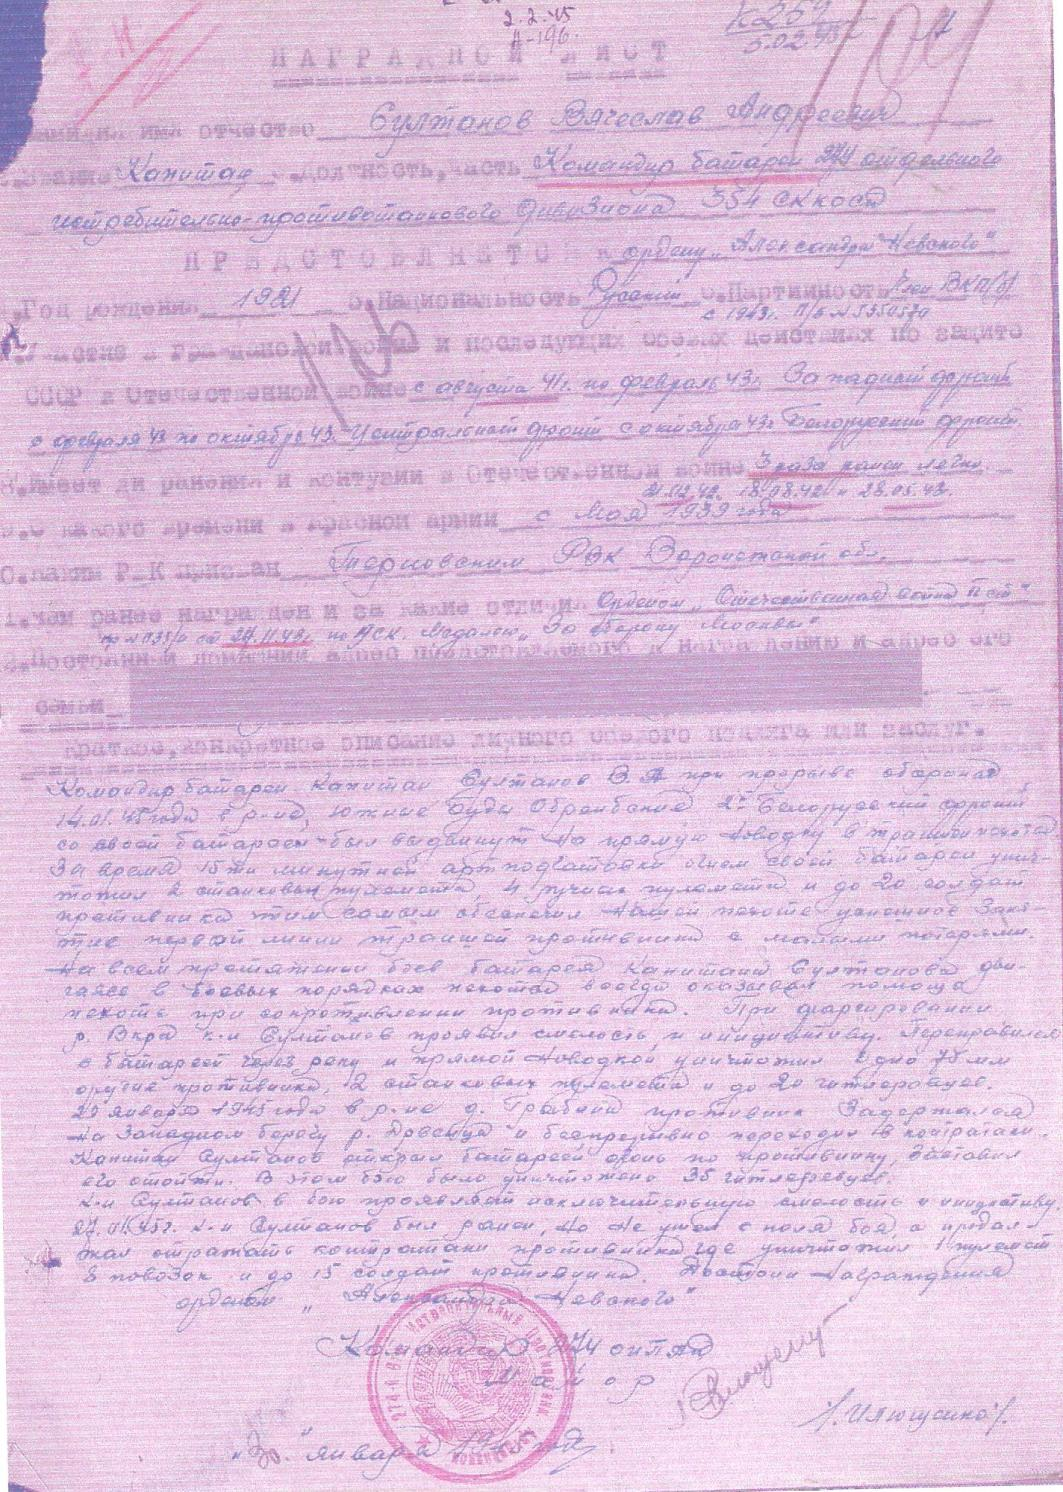 2.2.45
Н-196.
К259
5.02.45
НАГРАДНОЙ ЛИСТ
Фамилия имя отчество Султанов Вячеслав Андреевич
Звание Капитан Должность, часть Командир батареи 274 отдельного
истребительно-противотанкового дивизиона 354 СК
ПРЕДСТОВЛЯЕТСЯ к ордену „Александра Невского"
Год рождения 1921 Национальность Русский Партийность Член ВКП/б/
с 1943г. П/б №
Участие в гражданской войне и последующих боевых действиях по защите
СССР в Отечественной войне с августа 41г. по февраль 43г. Западный фронт
с февраля 43 по октябрь 43. Центральный фронт с октября 43г. Белорусский фронт.
Имеет ли ранения и контузии в Отечественной войне 3 раза ранен легко.
21.02.42. 18.08.42 и 28.05.43.
С какого времени в красной армии с мая 1939 года
Каким РВК призван Терновским РВК Воронежской обл.
Чем ранее награжден и за какие отличия Орденом „Отечественная война II ст"
от 27.11.43г. по АСК. Медалью „За оборону Москвы"
Постоянный домашний адрес представляемого к награждению и адрес его
семьи
Краткое, конкретное описание личного боевого подвига или заслуг.
Командир батареи капитан Султанов В.А при прорыве обороны
14.01.45 года в р-не, южнее 2й Белорусский фронт
со своей батареей был выдвинут на прямую наводку в траншеи пехоты
За время 15ти минутной артподготовки огнем своей батареи унич-
тожил 2 станковых пулемета, 4 ручных пулемета и до 20 солдат
противника тим самым обеспечил нашей пехоте успешное заня-
тие первой линии траншей противника с малыми потерями.
На всем протяжении боев батарея капитана Султанова дви-
гаясь в боевых порядках пехоты всегда оказывал помощь
пехоте при сопротивлении противника. При форсировании
р. Вкра к-н Султанов проявил смелость и инициативу. Переправился
с батареей через реку и прямой наводкой уничтожил одно 75 мм
орудие противника, 2 станковых пулемета и до 20 гитлеровцев.
20 января 1945 года в р-не д. противник задержался
на западном берегу р. Дрвенца и беспрерывно переходил в контратаки.
Капитан Султанов открыл батареей огонь по противнику, заставил
его отойти. В этом бою было уничтожено 35 гитлеровцев.
к-н Султанов в бою проявляет исключительную смелость и инициативу
27.01.45г. к-н Султанов был ранен, но не ушел с поля боя, а продол-
жал отражать контратаки противника где уничтожил 1 пулемет
8 повозок и до 15 солдат противника. Достоин награждения
орденом „Александра Невского"
Командир 274 оиптд
Майор
/Илющенко/.
„30" января 1945 года